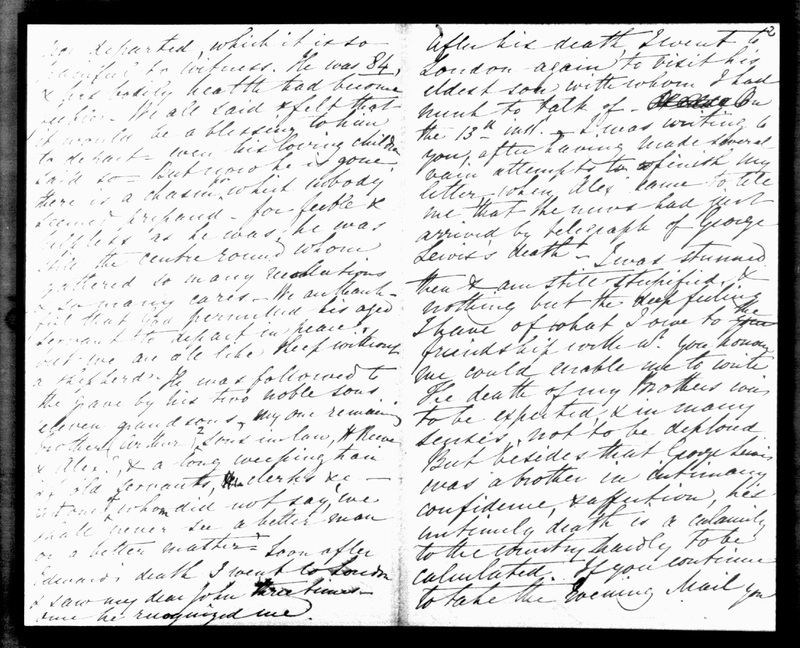 departed, which it is so
to witness. He was 84,
& his bodily health had become
feebler. We all said & felt that
it would be a blessing to him
to depart – even his loving children
said so – But now he is gone
there is a chasm which nobody
seemed prepared – for feeble &
helpless as he was, he was
still the centre round whom
gathered so many
& so many cares – We are thank-
ful that God permitted his aged
servant to depart in peace &
but we are all like sheep without
a shepherd. He was followed to
the grave by his two noble sons,
eleven grandsons, my one remaing
brother (Arthur) sons in law, H Reeve
& Alex., & a long weeping train
of old servants, clerks &c –
not one of whom did not say, we
shall never see a better man
or a better master – Soon after
Edward's death I went to London
& saw my dear John three times –
once he recognized me.
2
After his death, I went to
London again to visit his
eldest son with whom I had
much to talk of – On
the 13th inst. – I was writing to
you, after having made several
vain attempts to finish my
letter – when Alex came to tell
me that the news had just
arrived by telegraph of George
Lewis's death – I was stunned
then & am still stupified, &
nothing but the deep feeling
I have of what I owe to the
friendship with wh. you honour
me could enable me to write.
The death of my Brothers was
to be expected & in many
senses, not to be deplored
But besides that George Lewis
was a brother in intimacy
confidence, & affection, his
untimely death is a calamity
to the country hardly to be
calculated. If you continue
to take the Evening Mail you